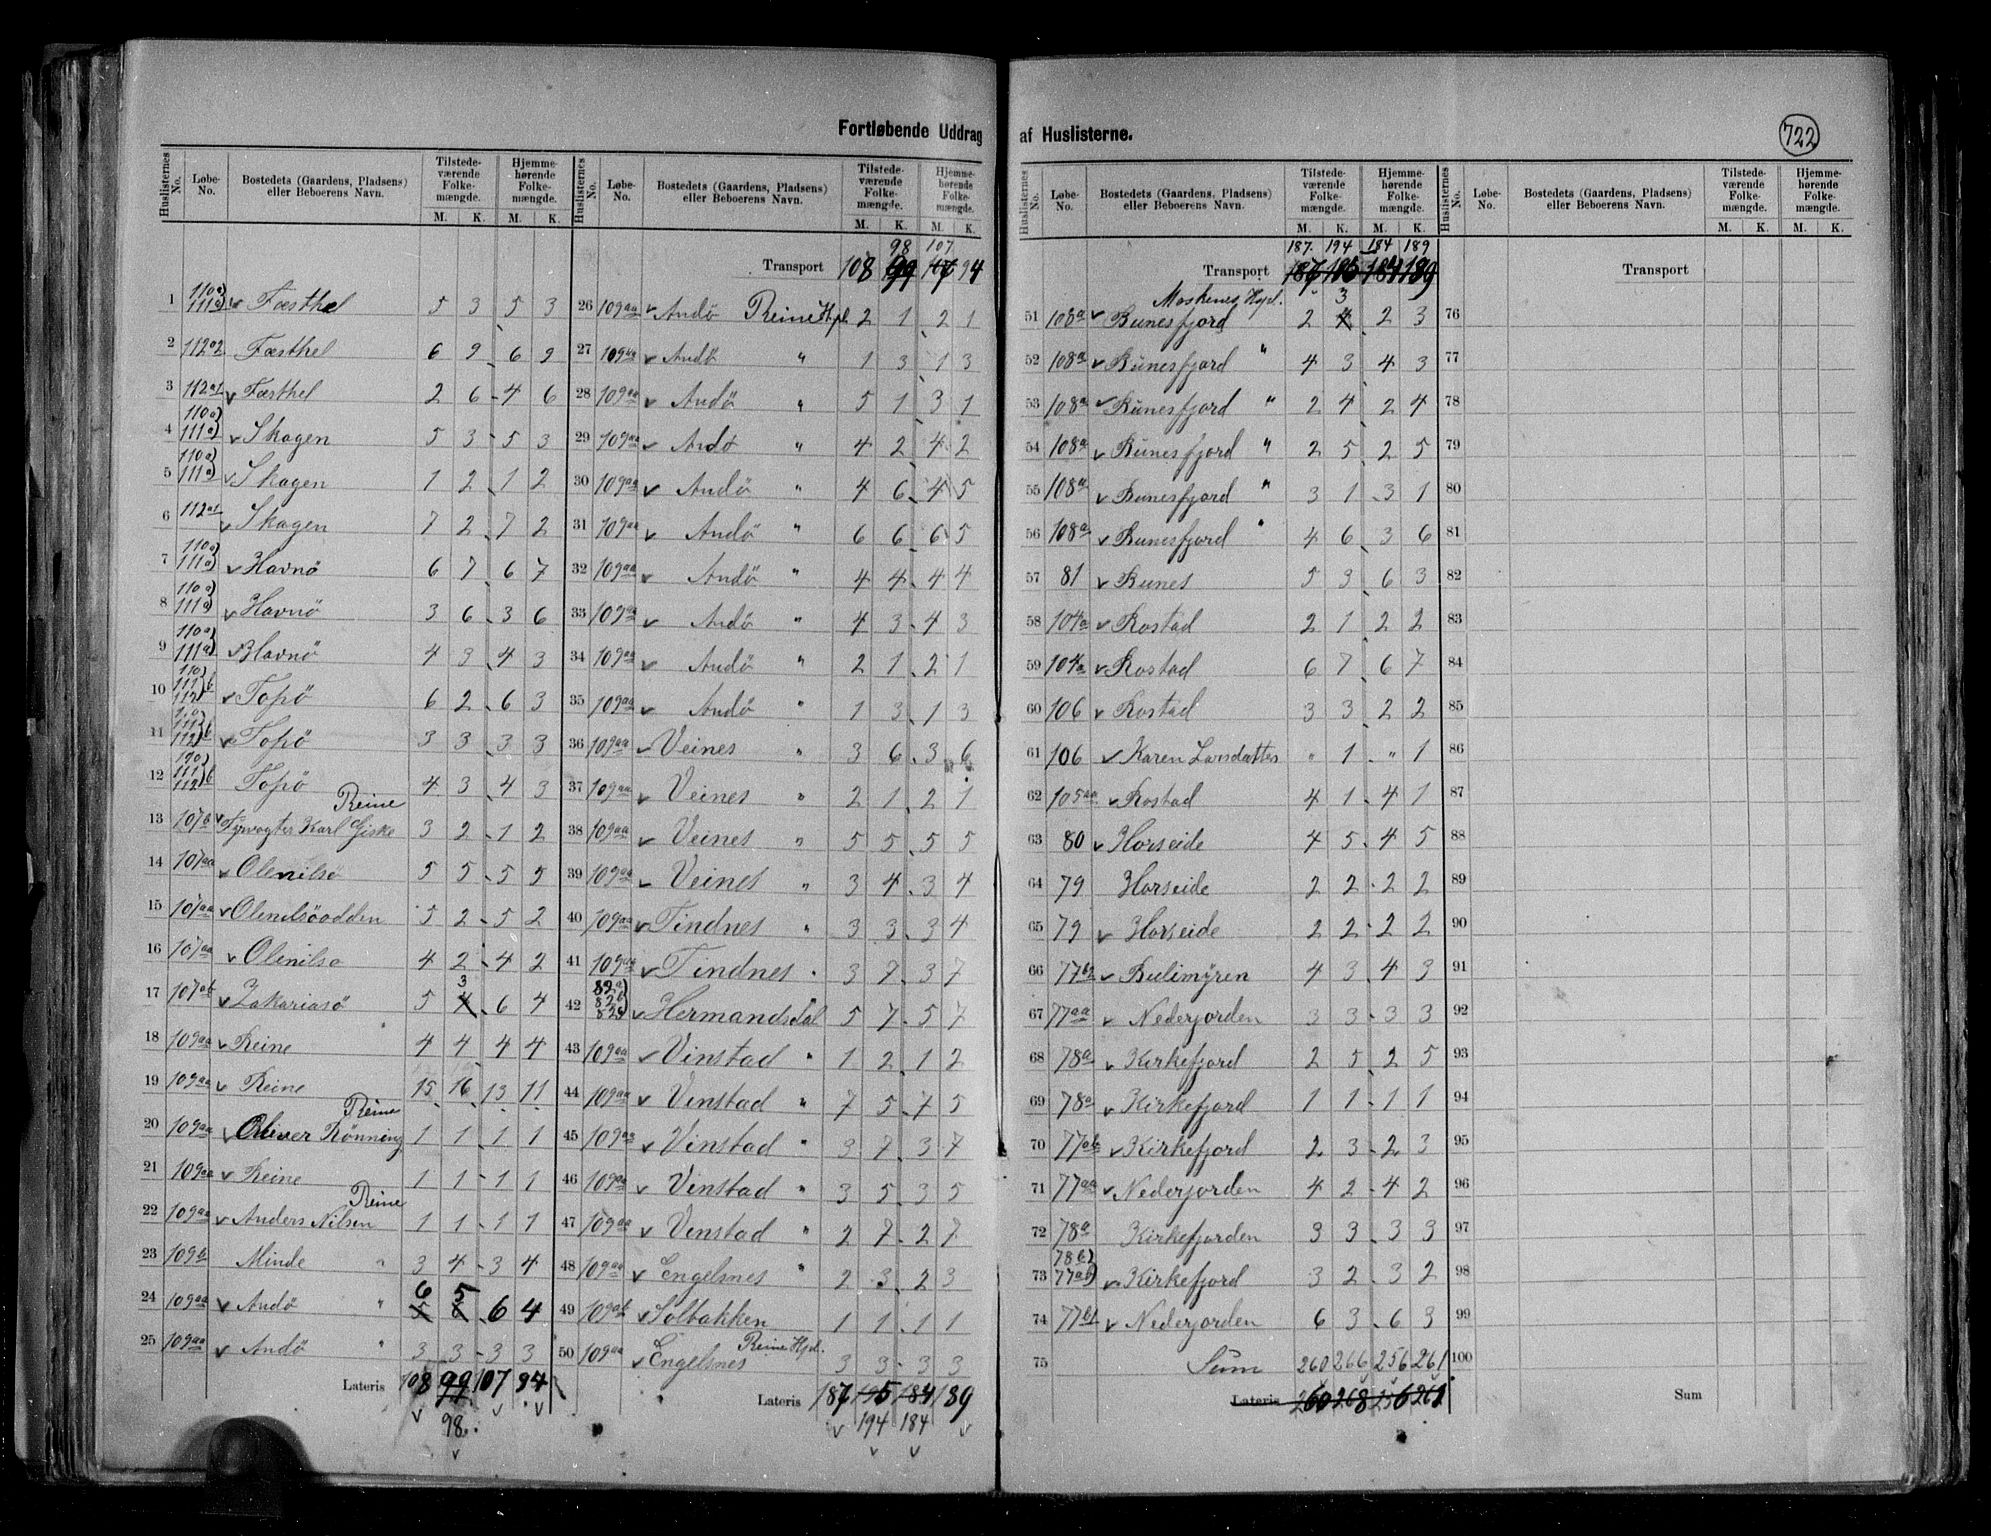 Fortløbende Uddrag af Huslisterne.
722
Huslisternes No. Løbe-No. Bostedets (Gaardens, Pladsens) eller Beboerens Navn. Tilstedeværende Folkemængde. M. K. Hjemmehørende Folkemængde. M. K.
1 110a) 111a) v Fæsthel 5 3 5 3
2 112a2 Fæsthel 6 9 6 9
3 112a1 v Fæsthel 2 6 4 6
4 110a) 111a) v Skagen 5 3 5 3
5 110a) 111a) v Skagen 1 2 1 2
6 112a1 v Skagen 7 2 7 2
7 110a) 111a) v Havnø 6 7 6 7
8 110a) 111a) v Havnø 3 6 3 6
9 110a) 111a) v Havnø 4 3 4 3
10 110) 111) b 112) v Topø 6 2 6 3
11 110) 111) b 112) v Topø 3 3 3 3
12 110) 111) b 112) Topø 4 3 4 3
Reine
13 107b v Fyrvogter Karl Giske 3 2 1 2
14 107aa v Olenilsø 5 5 5 5
15 107aa v Olenilsöodden 5 2 5 2
16 107aa v Olenilsø 4 2 4 2
3
17 107ab v Zakariasö 5 4 6 4
18 109aa v Reine 4 4 4 4
19 109aa v Reine 15 16 13 11
Reine
20 109aa v Oliver Rönning 1 1 1 1
21 109aa v Reine 1 1 1 1
Reine
22 109aa v Anders Nilsen 1 1 1 1
23 109b Minde " 3 4 3 4
6 5
24 109aa v Andö " 5 6 6 4
25 109aa v Andö " 3 3 3 3
Lateris 108 99 107 94
98
Huslisternes No. Løbe-No. Bostedets (Gaardens, Pladsens) eller Beboerens Navn. Tilstedeværende Folkemængde. M. K. Hjemmehørende Folkemængde. M. K.
98 107
Transport 108 99 107 94
26 109aa v Andö Reine Hpl 2 1 2 1
27 109aa v Andö " 1 3 1 3
28 109aa v Andö " 5 1 3 1
29 109aa v Andö " 4 2 4 2
30 109aa v Andö " 4 6 4 5
31 109aa v Andö " 6 6 6 5
32 109aa v Andö " 4 4 4 4
33 109aa v Andö " 4 3 4 3
34 109aa v Andö " 2 1 2 1
35 109aa v Andö " 1 3 1 3
36 109aa v Veines " 3 6 3 6
37 109aa v Veines " 2 1 2 1
38 109aa v Veines " 5 5 5 5
39 109aa v Veines " 3 4 3 4
40 109aa v Tindnes " 3 3 3 4
41 109aa v Tindnes " 3 7 3 7
42 82a) 82b) 82c) v Hermandsdal " 5 7 5 7
43 109aa v Vinstad " 1 2 1 2
44 109aa v Vinstad " 7 5 7 5
45 109aa v Vinstad " 3 7 3 7
46 109aa v Vinstad " 3 5 3 5
47 109aa v Vinstad " 2 7 2 7
48 109aa v Engelsnes " 2 3 2 3
49 109ab v Solbakken 1 1 1 1
50 109aa v Engelsnes Reine Hpl. 3 3 3 3
Lateris 187 195 184 189
194 184
Huslisternes No. Løbe-No. Bostedets (Gaardens, Pladsens) eller Beboerens Navn. Tilstedeværende Folkemængde. M. K. Hjemmehørende Folkemængde. M. K.
187. 194 184 189
Transport 187 195 184 189
Moskenes Hpl. 3
51 108a v Bunesfjord 2 4 2 3
52 108a v Bunesfjord " 4 3 4 3
53 108a v Bunesfjord " 2 4 2 4
54 108a v Bunesfjord " 2 5 2 5
55 108a v Bunesfjord " 3 1 3 1
56 108a v Bunesfjord " 4 6 3 6
57 81 v Bunes 5 3 6 3
58 104a v Rostad 2 1 2 2
59 104a v Rostad 6 7 6 7
60 106 v Rostad 3 3 2 2
61 106 v Karen Larsdatter " 1 " 1
62 105aa v Rostad 4 1 4 1
63 80 v Horseide 4 5 4 5
64 79 Horseide 2 2 2 2
65 79 v Horseide 2 2 2 2
66 77b2 v Bulimyren 4 3 4 3
67 77aa v Nederjorden 3 3 3 3
68 78a v Kirkefjord 2 5 2 5
69 78a v Kirkefjord 1 1 1 1
70 77ab v Kirkefjord 2 3 2 3
71 77aa v Nederjorden 4 2 4 2
72 78a Kirkefjorden 3 3 3 3
73 78b) 77ab) v Kirkefjord 3 2 3 2
74 77b1 v Nederjorden 6 3 6 3
75 Sum 260 266 256 261
Lateris 260 268 256 261
Huslisternes No. Løbe-No. Bostedets (Gaardens, Pladsens) eller Beboerens Navn. Tilstedeværende Folkemængde. M. K. Hjemmehørende Folkemængde. M. K.
Transport
76
77
78
79
80
81
82
83
84
85
86
87
88
89
90
91
92
93
94
95
96
97
98
99
100
Sum